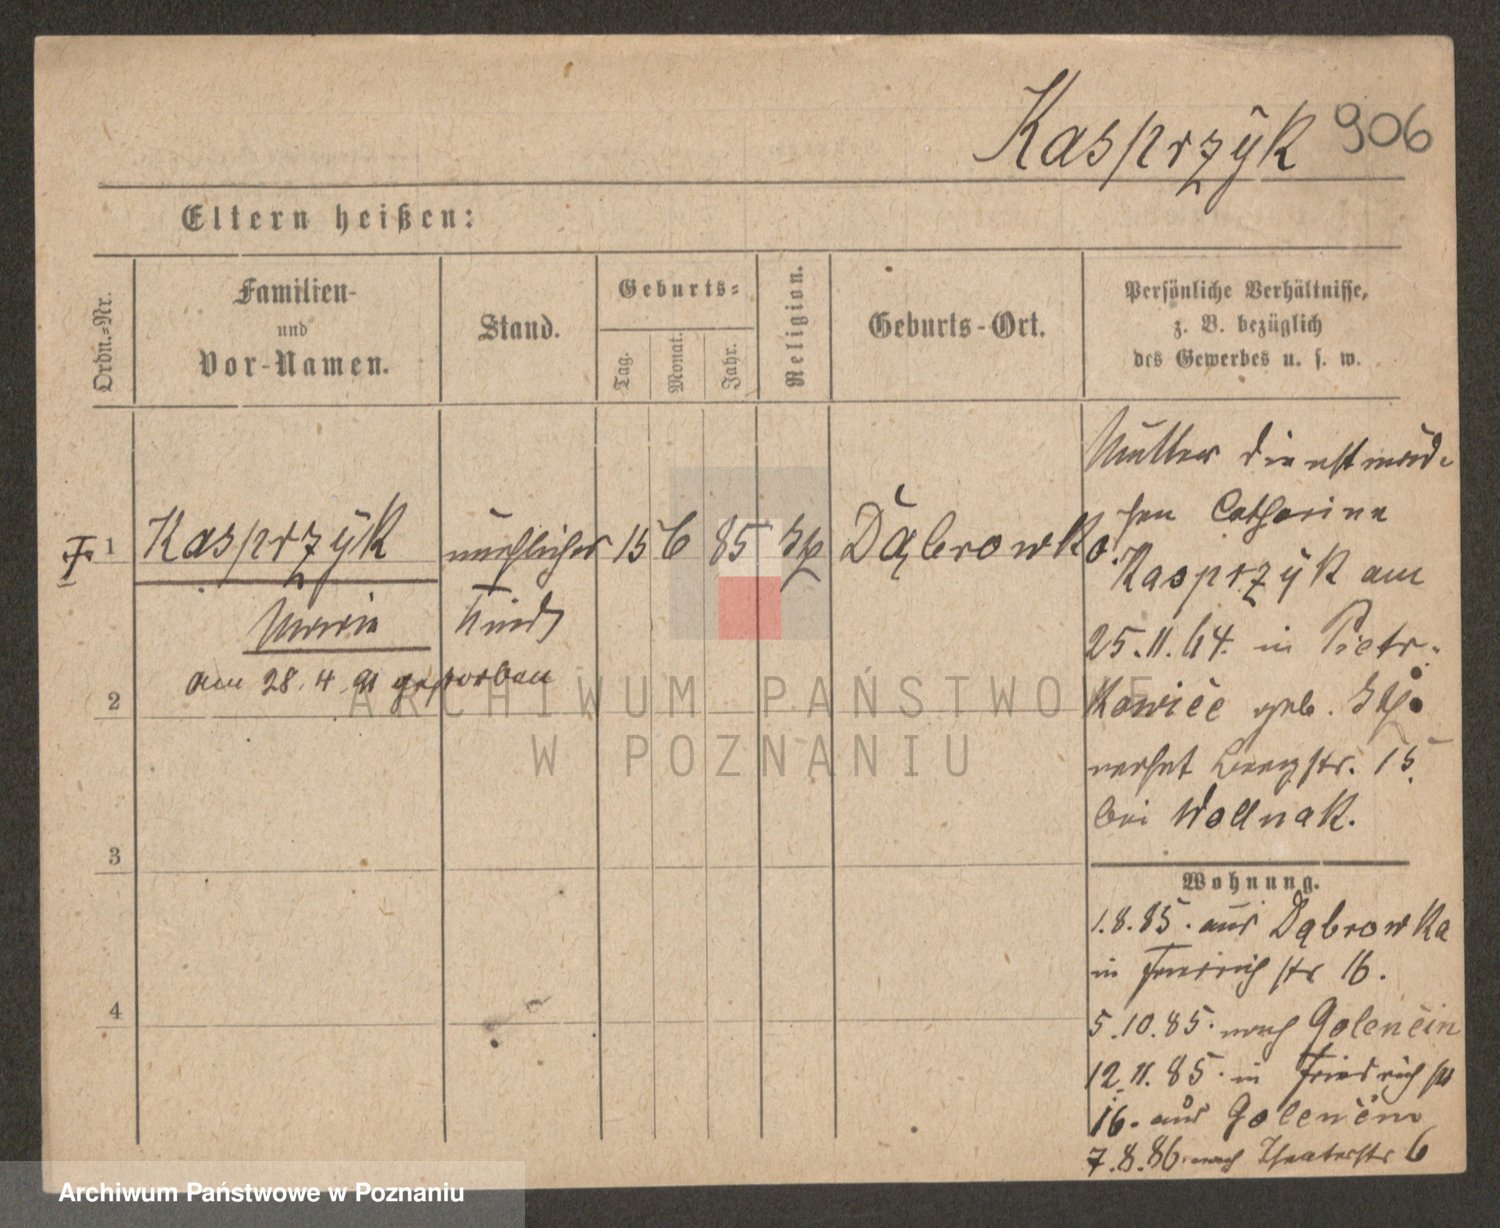 Kasprzyk 906
Eltern heißen:
Ordn.-Nr.
Familien-
und
Vor-Namen.
Stand.
Geburts-
Tag.
Monat.
Jahr.
Religion.
Geburts-Ort.
Persönliche Verhältnisse,
z. B. bezüglich
des Gewerbes u. s. w.
1 Kasprzyk unehlicher 15 6 85 Dąbrowka
Maria Kind
am 28.4.91 gestorben
2
3
4
Mutter Dienstmäd-
chen Catharina
Kasprzyk am
25.11.64. in Pietr-
kowice geb.
wohnt Bergstr. 15
bei Wollnak.
Wohnung.
1.8.85. aus Dąbrowka
in Friedrichstr 16.
5.10.85. nach Golencin
12.11.85. in Friedrichstr
16. aus Golencin
7.8.86. nach Theaterstr 6
ARCHIWUM PAŃSTWOWE
W POZNANIU
Archiwum Państwowe w Poznaniu